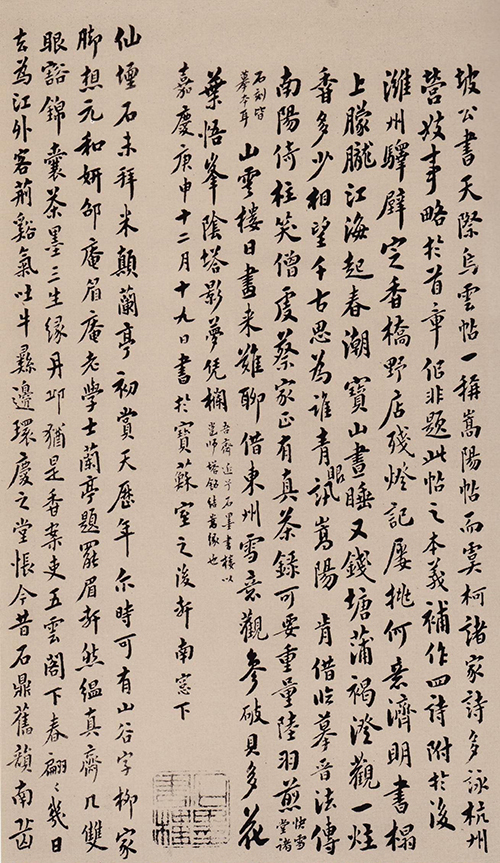 坡公書天際烏雲帖一稱嵩陽帖而虞柯諸家詩多詠杭州
營妓事略於首章似非題此帖之本義補作四詩附於後
濰州驛壁定香橋野店殘燈記屢挑何意濟明書榻
上朦朧江海起春潮 寶山晝睡又錢塘蒲褐澄觀一炷
香多少相望千古思為誰青眼訊嵩陽 肯借臨摹晉法傳
南陽倚柱笑僧虔蔡家正有真茶錄可要重量陸羽煎 快雪堂諸
石刻皆摹本耳 山雲樓日畫来難聊借東州雪意觀參破貝多花
葉悟峯陰塔影夢凭欄 吾齋近石墨書樓以邕師塔銘結嵩緣也
嘉慶庚申十二月十九日書於寶蘇室之後軒南窓下
仙壇石未拜米顛蘭亭初賞天歷年尒時可有山谷字柳家
脚想元和妍邵庵眉庵老學士蘭亭題罷眉軒然緼真齋几雙
眼豁錦囊茶墨三生緣丹邱猶是香案吏五雲閣下春翩〻幾日
去為江外客荊谿氣吐牛邊環慶之堂悵今昔石鼎舊韻南